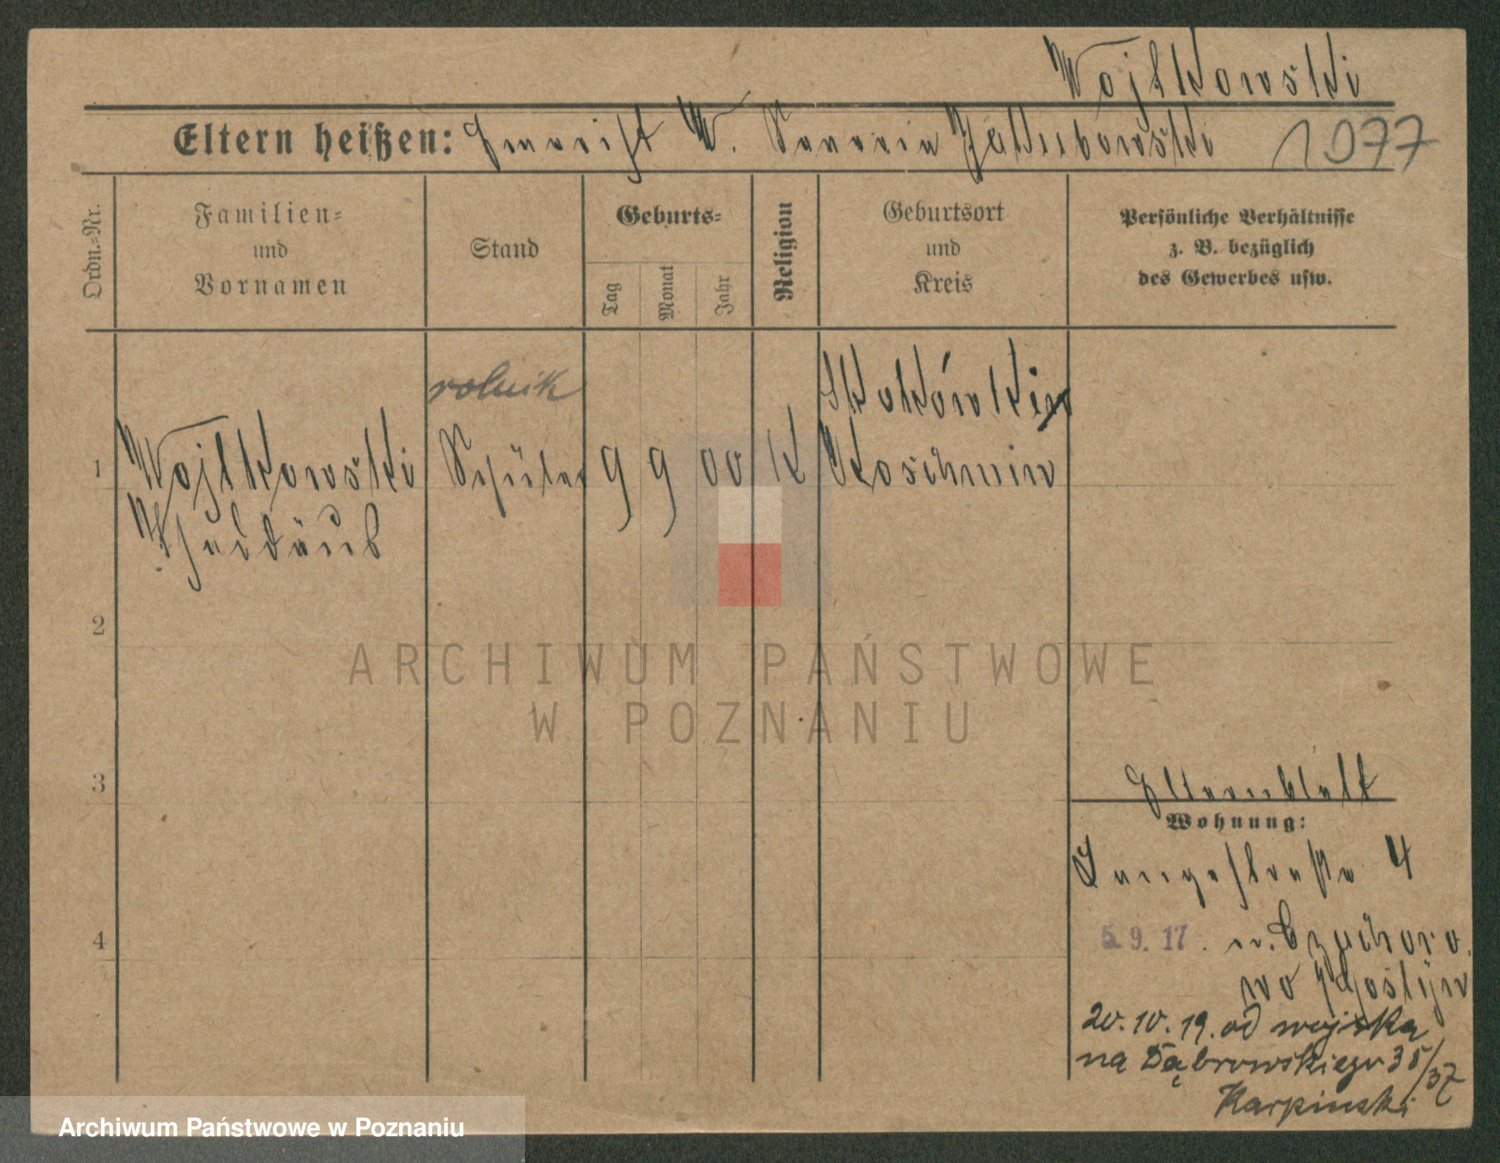 Wojtkowski
Eltern heißen: W. 1077
Ordn.=Nr.
Familien=
und
Vornamen
Stand
Geburts=
Tag
Monat
Jahr
Religion
Geburtsort
und
Kreis
Persönliche Verhältnisse
z. B. bezüglich
des Gewerbes usw.
rolnik
1 Wojtkowski Schüler 9 9 00 K Koschmin
Thaddäus
2
3
4
Elternblatt
Wohnung:
Langestraße 4
5.9.17. n. Czachoro
wo Gostyn
20.10.19. od wojska
na Dąbrowskiego 35/37
Karpinski
ARCHIWUM PAŃSTWOWE
W POZNANIU
Archiwum Państwowe w Poznaniu